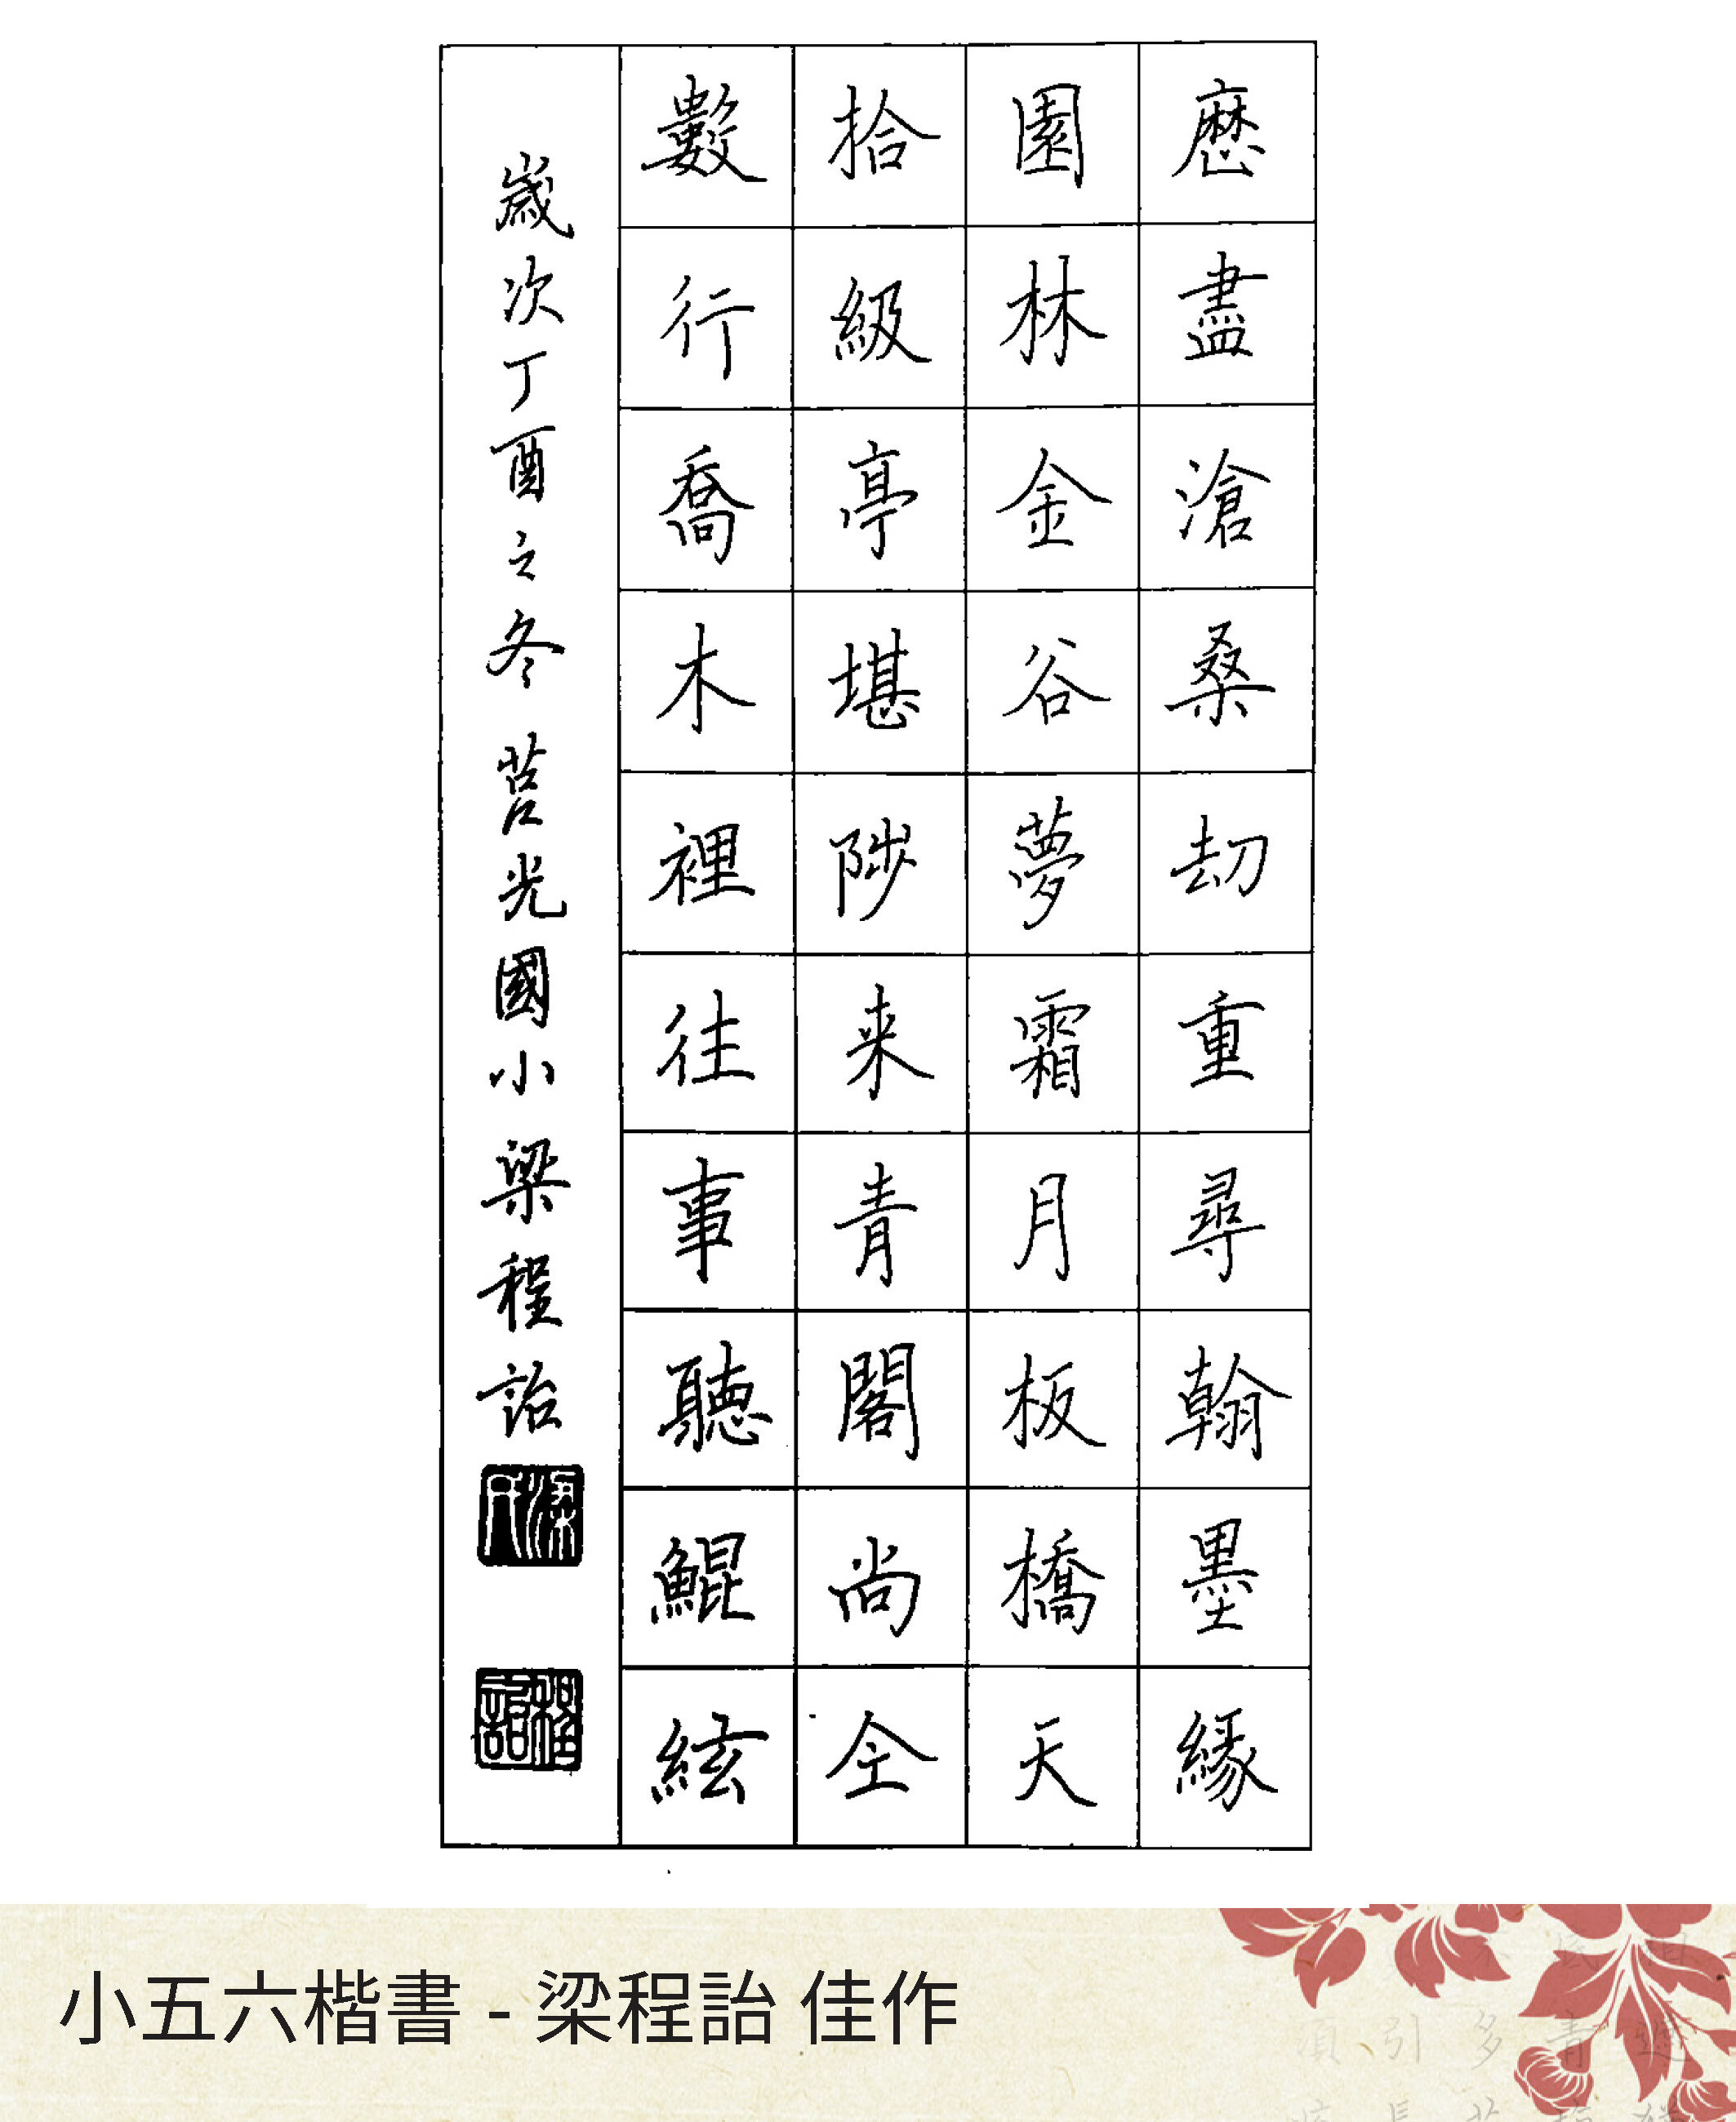 歷盡滄桑劫重尋翰墨緣
園林金谷夢霜月板橋天
拾級亭堪陟来青閣尚仝
數行喬木裡往事聽鯤絃
歲次丁酉之冬 莒光國小梁程詒
梁氏
程詒
小五六楷書 - 梁程詒 佳作